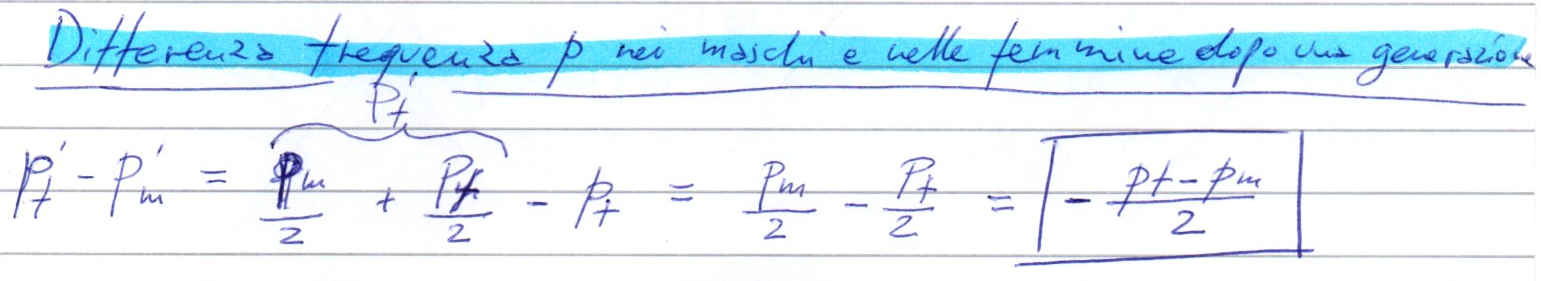 Differenza frequenza p nei maschi e nelle femmine dopo una generazione
p'f
p'f - p'm = pm/2 + pf/2 - pf = pm/2 - pf/2 = - pf-pm/2